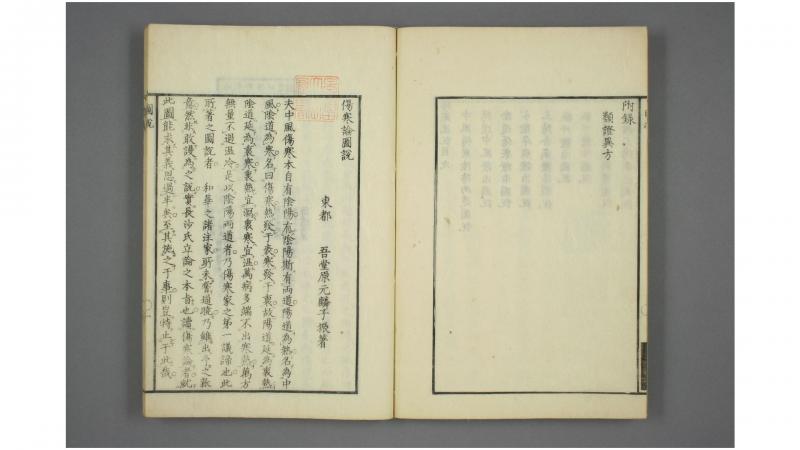 附錄
類證異方
傷寒論圖說
東都 吾堂原元麟子振著
夫中風傷寒本自有陰陽有陰陽斯有兩道陽道為熱名為中
風陰道為寒名曰傷寒熱發于表寒發于裏故陽道延為裏熱
陰道延為裏寒裏熱宜瀉裏寒宜溫萬病多端不出寒熱萬方
無量不過溫冷是以陰陽兩道者乃傷寒家之第一議諦也此
所著之圖說者 和華之諸注家所未嘗道破乃雖出于之
意然非敢謾為之說實長沙氏立論之本旨也讀傷寒論者就
此圖能求其義思過半矣至其施之于事則豈特止于此哉
圖說